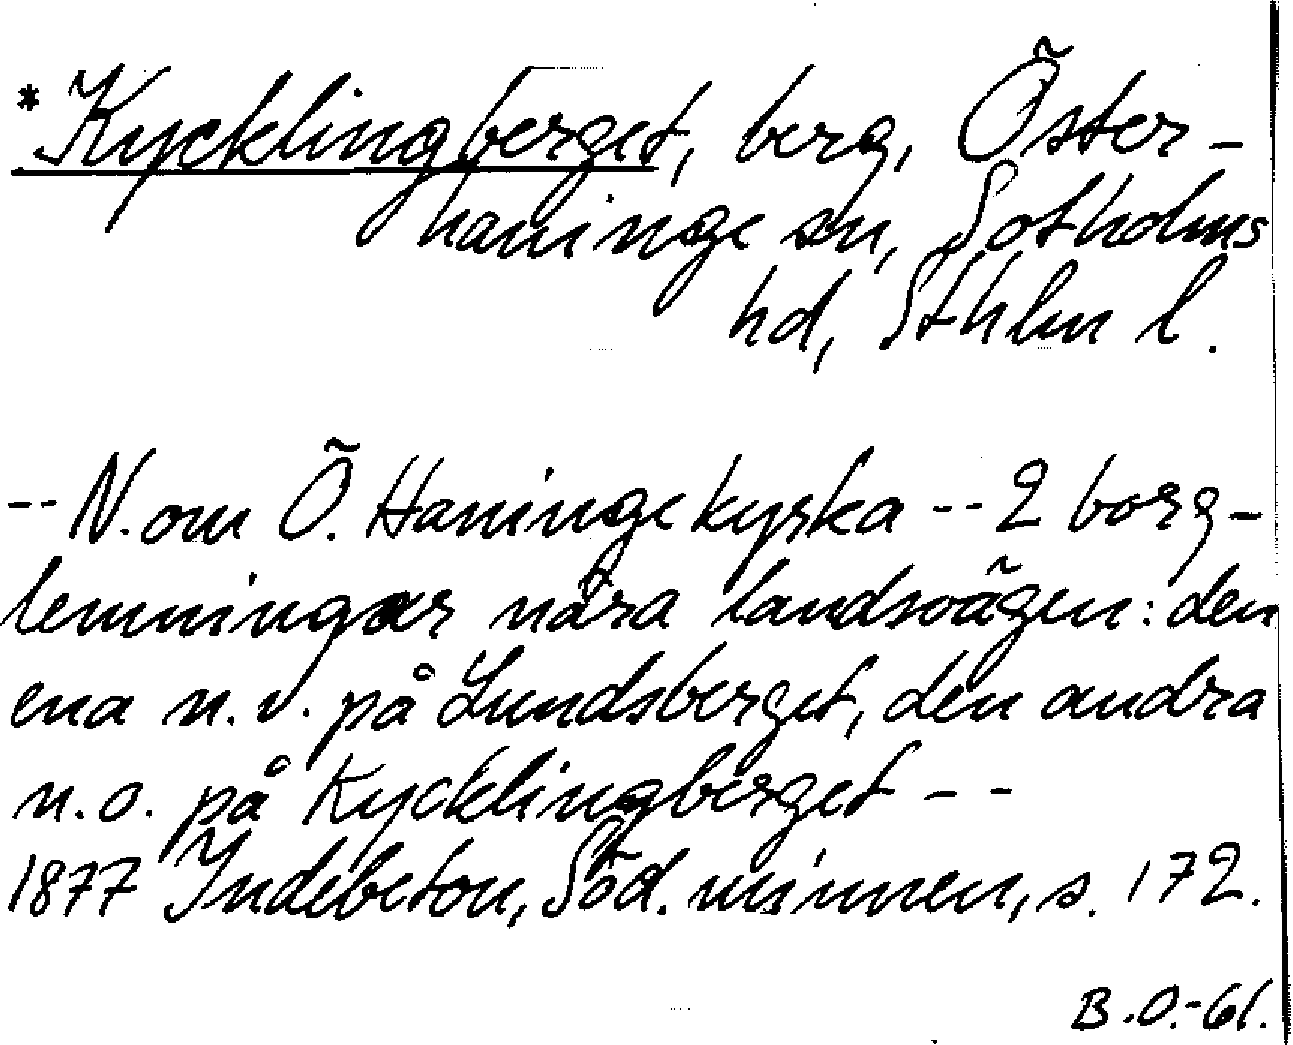 *Kycklingberget, berg, Öster-
haninge sn, Sotholms
hd, Sthlm l.
-- N. om Ö. Haninge kyrka -- 2 borg-
lemningar nära landsvägen: den
ena n.v. på Lundsberget, den andra
n.o. på Kycklingberget --
1877 Indebetou, Söd. minnen, s. 172.
B.O.-61.